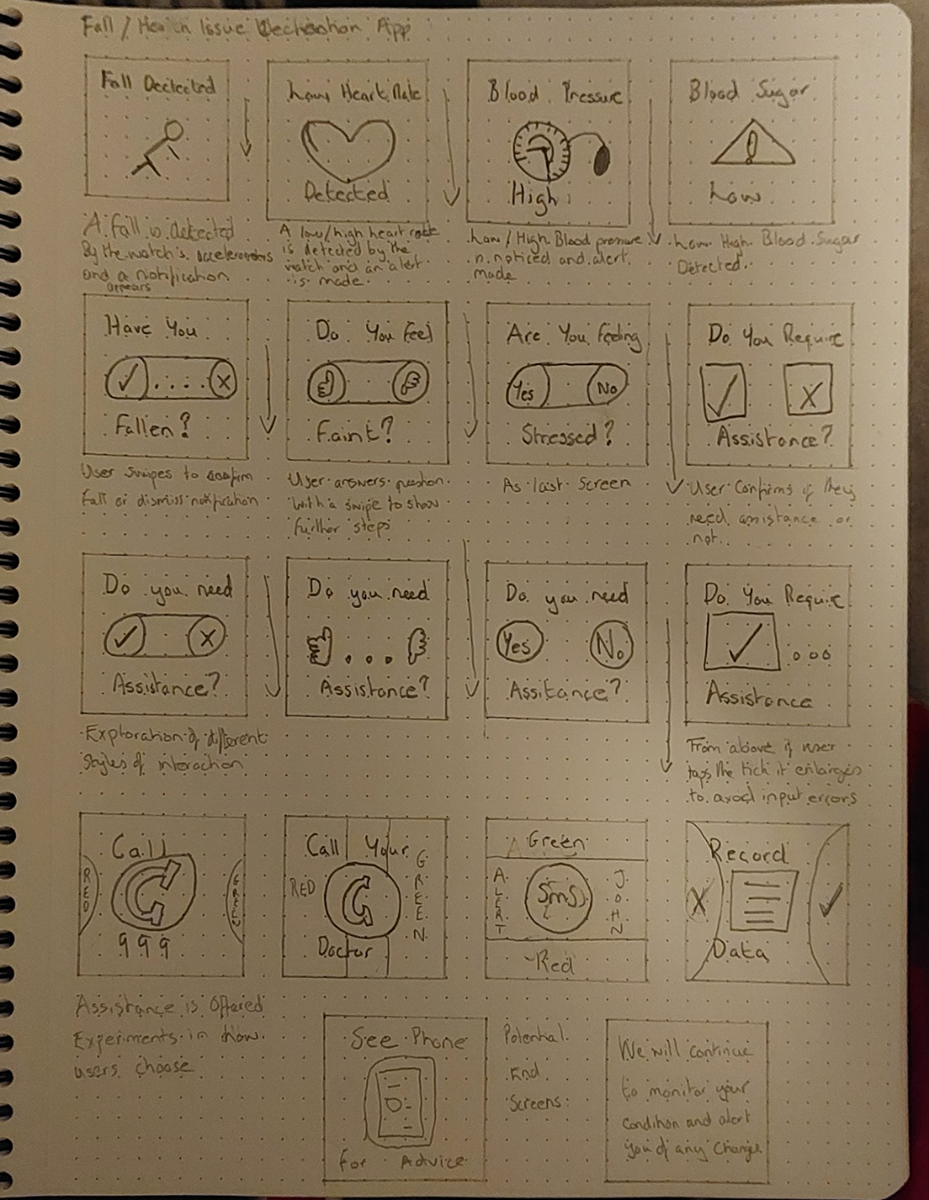 Fall / Health Issue Dectection App
Fall Dectected
Low Heart Rate
Detected
Blood Pressure
High
Blood Sugar
Low
A fall is detected
By the watch's accelerometers
and a notification
appears
A low/high heart rate
is detected by the
watch and an alert
is made.
Low / High Blood pressure
is noticed and alert
made
Low High Blood Sugar
Detected.
Have You
✓ . . . . x
Fallen?
Do You Feel
Faint?
Are You Feeling
Yes No
Stressed?
Do You Require
✓ x
Assistance?
User Swipes to confirm
fall or dismiss notification
User answers question
with a swipe to show
further steps
As last screen
User Confirms if they
need assistance or
not.
Do you need
✓ x
Assistance?
Do you need
. . .
Assistance?
Do you need
Yes No
Assitance?
Do You Require
✓ o o o
Assistance
Exploration of different
styles of interaction
From above if user
taps the tick it enlarges
to avoid input errors
Call
RED GREEN
999
Call Your
RED GREEN
Doctor
Green
ALERT SMS JOHN
Red
Record
X ✓
Data
Assistance is Offered
Experiments in how
users choose
See Phone
for Advice
Potential
End
Screens:
We will continue
to monitor your
condition and alert
you of any Change